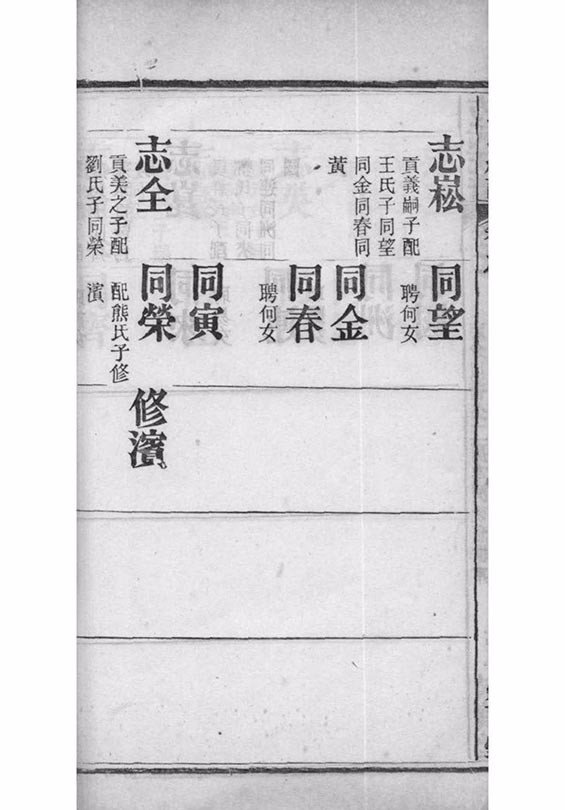 志崧
貢義嗣子配
王氏子同望
同金同春同
黃
志全
貢美之子配
劉氏子同榮
同望
聘何女
同金
同春
聘何女
同寅
同榮
配熊氏子修
濱
修濱